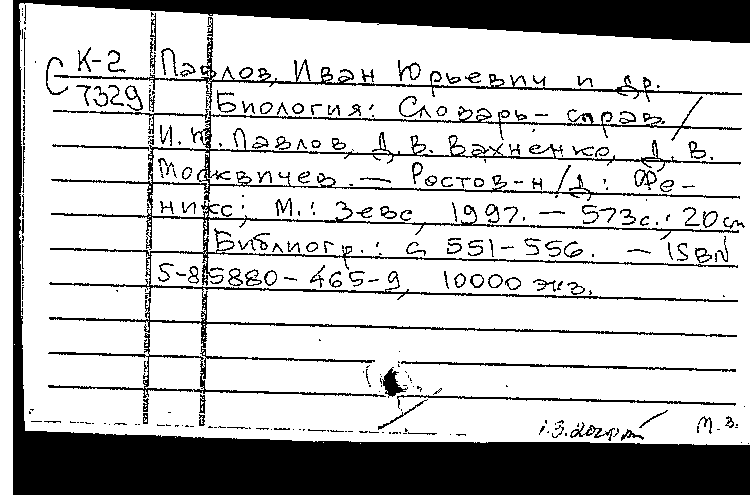 С К-2 Павлов, Иван Юрьевич и др.
7329 Биология: Словарь-справ. /
И. Ю. Павлов, Д. В. Вахненко, Д. В.
Москвичев. — Ростов-н/Д: Фе-
никс; М.: Зевс, 1997. — 573с.; 20см
Библиогр.: с 551-556. — ISBN
5-85880-465-9, 10000 экз.
М. З.